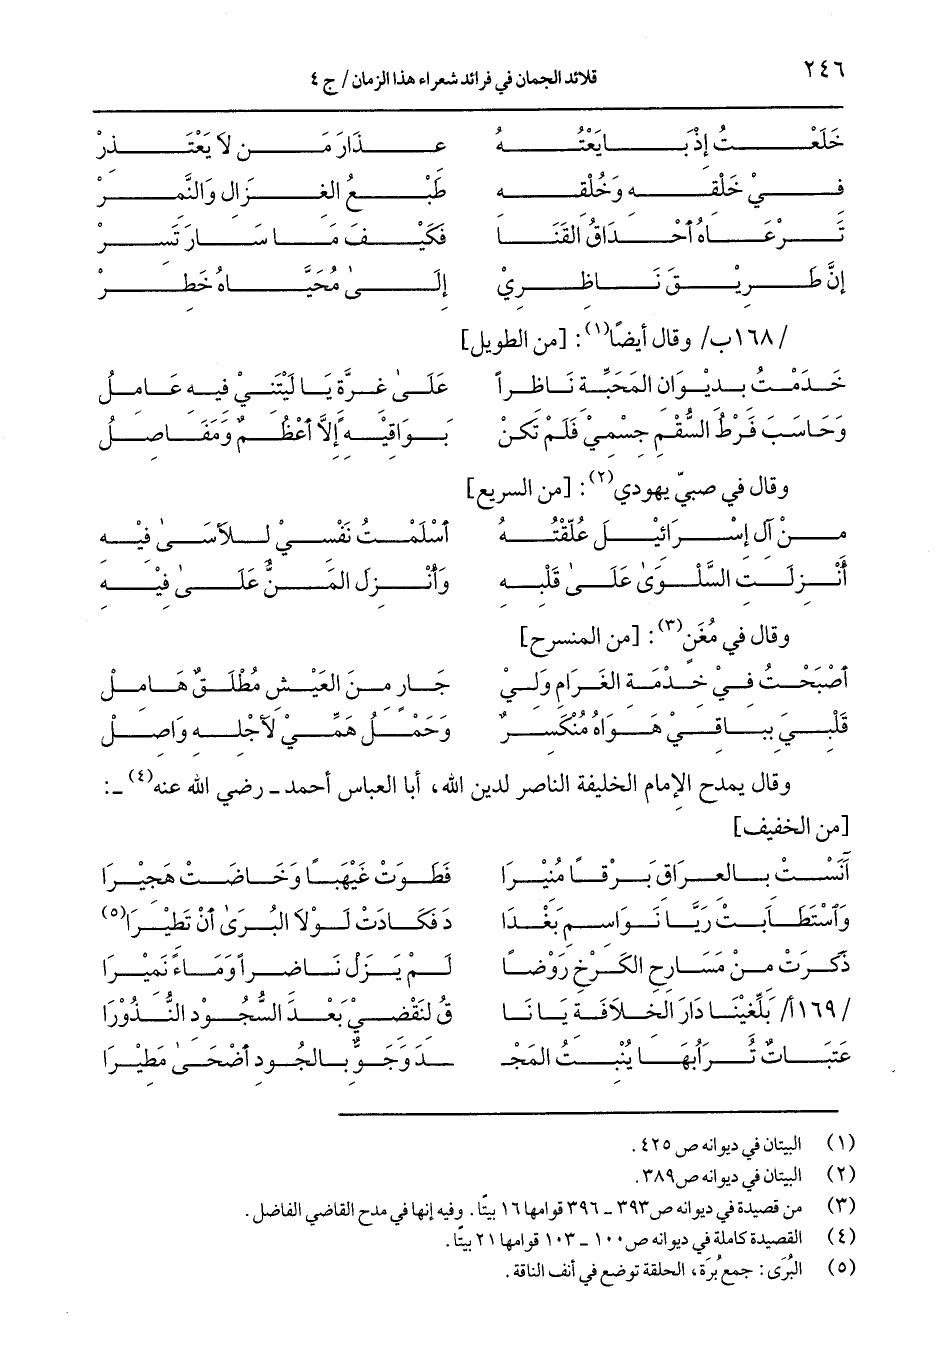 ٢٤٦
قلائد الجمان في فرائد شعراء هذا الزمان / ج ٤
خَلَعْتُ إذْ بَايَعْتُهُ عِذَارَ مَن لاَ يَعْتَذِرْ
فِيْ خَلْقِهِ وَخُلْقِهِ طَبْعُ الغَزَالِ وَالنَّمِرْ
تَرْعَاهُ أَحْدَاقُ القَنَا فَكَيْفَ مَا سَارَ تَسِرْ
إنَّ طَرِيْقَ نَاظِرِيْ إلَىٰ مُحَيَّاهُ خَطِرْ
/١٦٨ب/ وقال أيضًا(١): [من الطويل]
خَدَمْتُ بِدِيْوَانِ المَحَبَّةِ نَاظِراً عَلَىٰ غِرَّةٍ يَا لَيْتَنِيْ فِيهِ عَامِلُ
وَحَاسَبَ فَرْطُ السُّقْمِ جِسْمِيْ فَلَمْ تَكُنْ بَوَاقِيْهِ إلاَّ أَعْظُمٌ وَمَفَاصِلُ
وقال في صبيّ يهودي(٢): [من السريع]
مِنْ آلِ إسْرَائِيْلَ عُلِّقْتُهُ أَسْلَمْتُ نَفْسِيْ لِلأَسَىٰ فِيْهِ
أَنْزَلَتِ السَّلْوَىٰ عَلَىٰ قَلْبِهِ وَأَنْزِلَ المَنُّ عَلَىٰ فِيْهِ
وقال في مُغَنٍ(٣): [من المنسرح]
أَصْبَحْتُ فِيْ خِدْمَةِ الغَرَامِ وَلِيْ جَارٍ مِنَ العَيْشِ مُطْلَقٌ هَامِلْ
قَلْبِيَ بِبَاقِيْ هَوَاهُ مُنْكَسِرٌ وَحَمْلُ هَمِّيْ لأَجْلِهِ وَاصِلْ
وقال يمدح الإمام الخليفة الناصر لدين الله، أبا العباس أحمد ـ رضي الله عنه(٤) ـ:
[من الخفيف]
آنَسْتْ بِالعِرَاقِ بَرْقًا مُنِيْرَا فَطَوَتْ غَيْهَبًا وَخَاضَتْ هَجِيْرَا
وَٱسْتَطَابَتْ رَيَّا نَوَاسِمِ بَغْدَا دَ فَكَادَتْ لَوْلاَ البُرَىٰ أنْ تَطِيْرَا(٥)
ذَكَرَتْ مِنْ مَسَارِحِ الكَرْخِ رَوْضًا لَمْ يَزَلْ نَاضِراً وَمَاءً نَمِيْرَا
/١٦٩أ/ بَلِّغِيْنَا دَارَ الخِلاَفَةِ يَا نَا قُ لِنَقْضِيْ بَعْدَ السُّجُودِ النُّذُوْرَا
عَتَبَاتٌ تُرَابُهَا يُنْبِتُ المَجْـ ـدَ وَجَوٌّ بِالجُودِ أَضْحَىٰ مَطِيْرَا
(١) البيتان في ديوانه ص ٤٢٥ .
(٢) البيتان في ديوانه ص٣٨٩.
(٣) من قصيدة في ديوانه ص٣٩٣ ـ ٣٩٦ قوامها ١٦ بيتًا. وفيه إنها في مدح القاضي الفاضل .
(٤) القصيدة كاملة في ديوانه ص١٠٠ ـ ١٠٣ قوامها ٢١ بيتًا .
(٥) البُرَى: جمع بُرَة، الحلقة توضع في أنف الناقة .